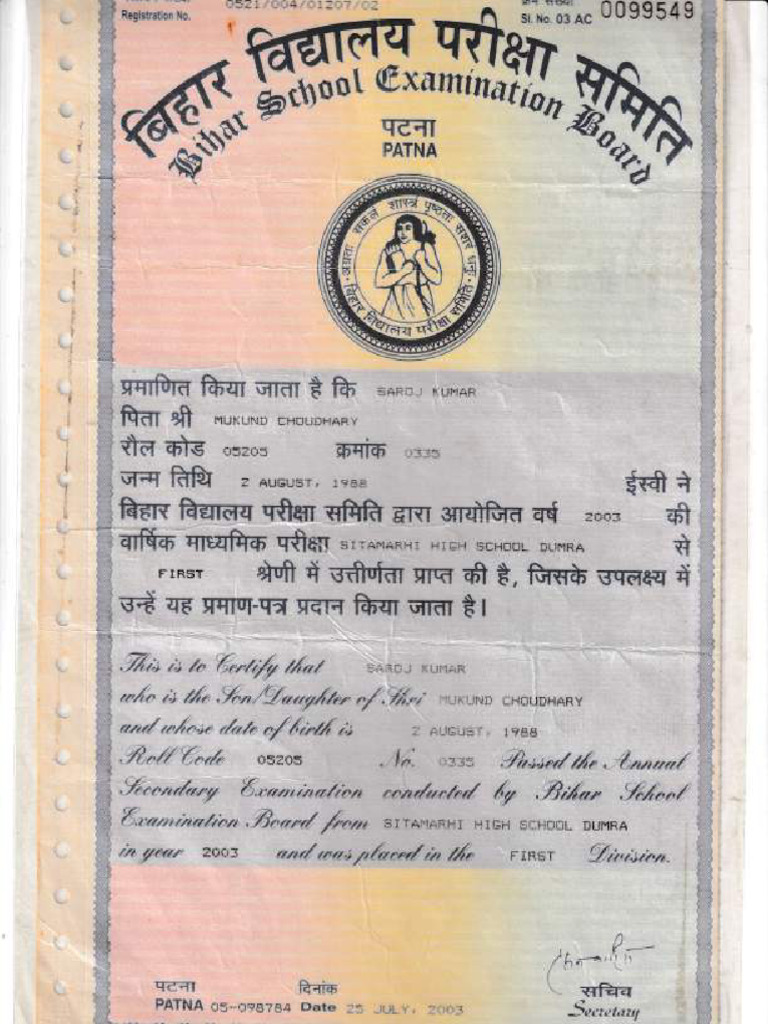 Registration No. 0521/004/01207/02
Sl. No. 03 AC 0099549
बिहार विद्यालय परीक्षा समिति
Bihar School Examination Board
पटना
PATNA
बिहार विद्यालय परीक्षा समिति
प्रमाणित किया जाता है कि SAROJ KUMAR
पिता श्री MUKUND CHOUDHARY
रौल कोड 05205 क्रमांक 0335
जन्म तिथि 2 AUGUST, 1988 ईस्वी ने
बिहार विद्यालय परीक्षा समिति द्वारा आयोजित वर्ष 2003 की
वार्षिक माध्यमिक परीक्षा SITAMARHI HIGH SCHOOL DUMRA से
FIRST श्रेणी में उत्तीर्णता प्राप्त की है, जिसके उपलक्ष्य में
उन्हें यह प्रमाण-पत्र प्रदान किया जाता है।
This is to Certify that SAROJ KUMAR
who is the Son/Daughter of Shri MUKUND CHOUDHARY
and whose date of birth is 2 AUGUST, 1988
Roll Code 05205 No. 0335 Passed the Annual
Secondary Examination conducted by Bihar School
Examination Board from SITAMARHI HIGH SCHOOL DUMRA
in year 2003 and was placed in the FIRST Division.
पटना दिनांक
PATNA 05-098784 Date 25 JULY, 2003
सचिव
Secretary